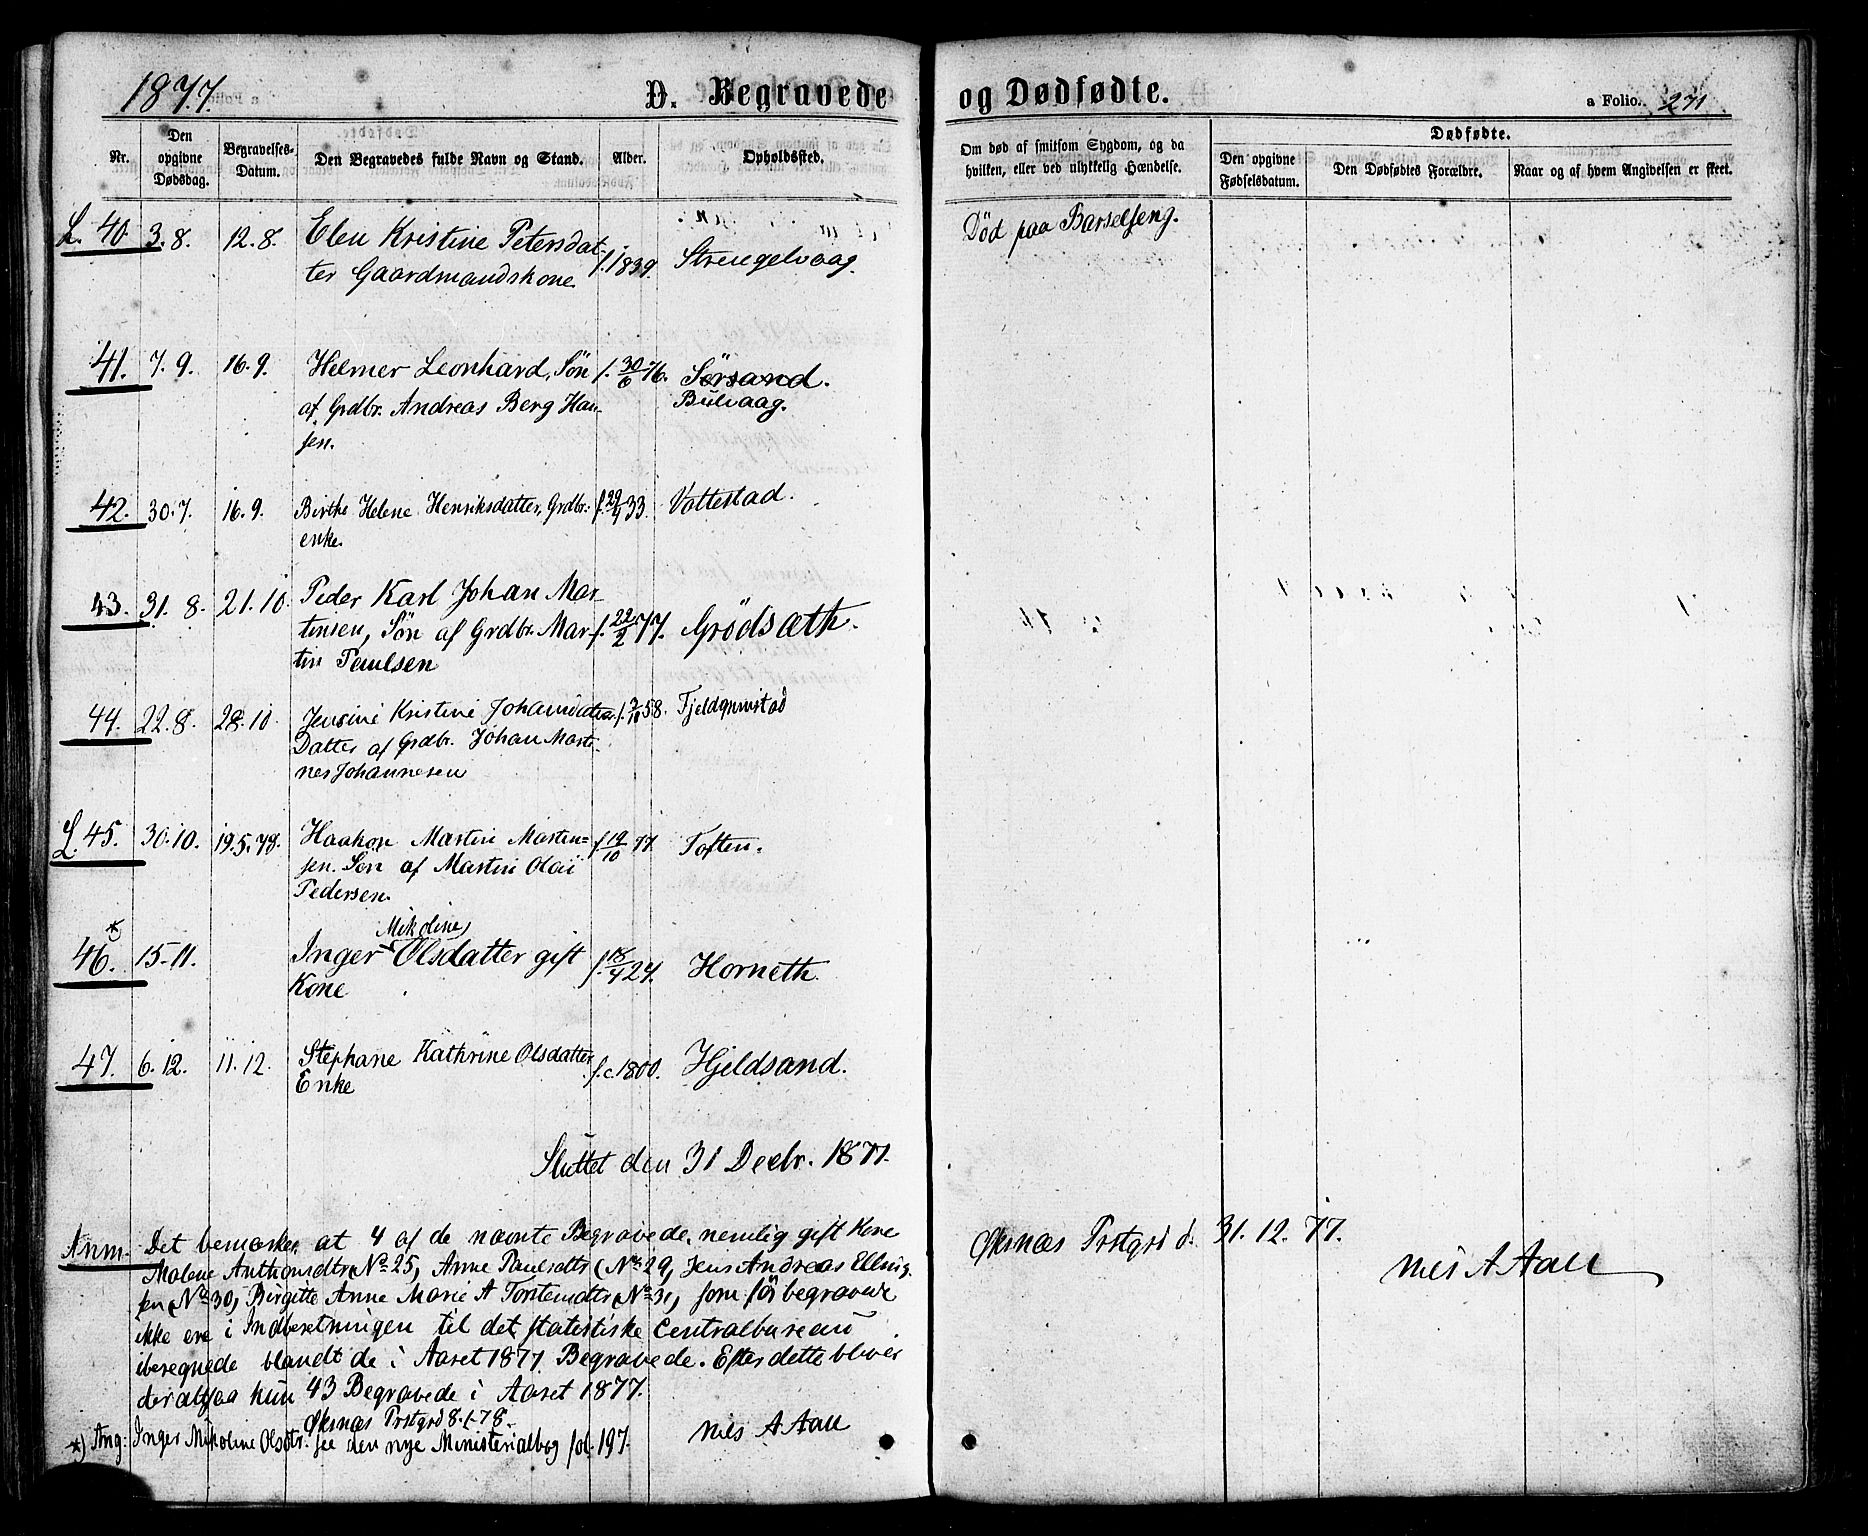 1877. D. Begravede og Dødfødte. a Folio. 271
Nr. Den opgivne Dødsdag. Begravelses-Datum. Den Begravedes fulde Navn og Stand. Alder. Opholdssted. Om død af smitsom Sygdom, og da hvilken, eller ved ulykkelig Hændelse. Dødfødte. Den opgivne Fødselsdatum. Den Dødfødtes Forældre. Naar og af hvem Angivelsen er skeet.
L. 40. 3.8. 12.8. Elen Kristine Petersdat- f. 1839. Strengelvaag. Død paa Barselseng.
ter Gaardmandskone
41. 7.9. 16.9. Helmer Leonhard, Søn f. 30/6 76. Sørsand.
af Grdbr. Andreas Berg Han- Bulvaag.
sen.
42. 30.7. 16.9. Birthe Helene Henriksdatter, Grdbr. f. 29/4 33. Vottestad.
enke.
43. 31.8. 21.10. Peder Karl Johan Mar-
tinsen, Søn af Grdbr. Mar- f. 22/2 77. Grødsæth.
tin Paulsen
44. 22.8. 28.10 Jensine Kristine Johansdatter f. 3/10 58. Fjeldgrimstad
Datter af Grdbr. Johan Marti-
nes Johannesen
L. 45. 30.10. 19.5.78. Haakon Martin Martin- f. 19/10 77. Toften.
sen. Søn af Martin Olai
Pedersen.
Mikoline
*) 46. 15.11. Inger Olsdatter gift f. 15/4 27. Horneth.
Kone
47. 6.12. 11.12. Stephane Kathrine Olsdatter f. c. 1800. Hjeldsand.
Enke
Sluttet den 31 Decbr. 1877.
Øksnæs Prstgrd d. 31.12.77.
Nils A Aall
Anm. Det bemærkes at 4 af de nævnte Begravede, nemlig gift Kone
Malene Anthonsdtr (No 25), Anne Paulsdtr (No 29), Jens Andreas Elling-
sen (No 30), Birgitte Anne Marie A Torstensdtr (No 31), som før begravede
ikke ere i Indberetningen til det statistiske Centralbureau
iberegnede blandt de i Aaret 1877 Begravede. Efter dette bliver
der altsaa kun 43 Begravede i Aaret 1877.
Øksnæs Prstgrd 8.1.78. Nils A Aall
*) Ang: Inger Mikoline Olsdtr. see den nye Ministerialbog fol. 197.